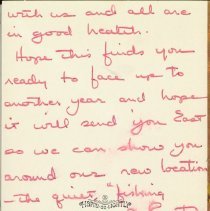 with us and all are
in good health.
Hope this finds you
ready to face up to
another year and hope
it will send you East
so we can show you
around our new location
– the quiet, "fishing